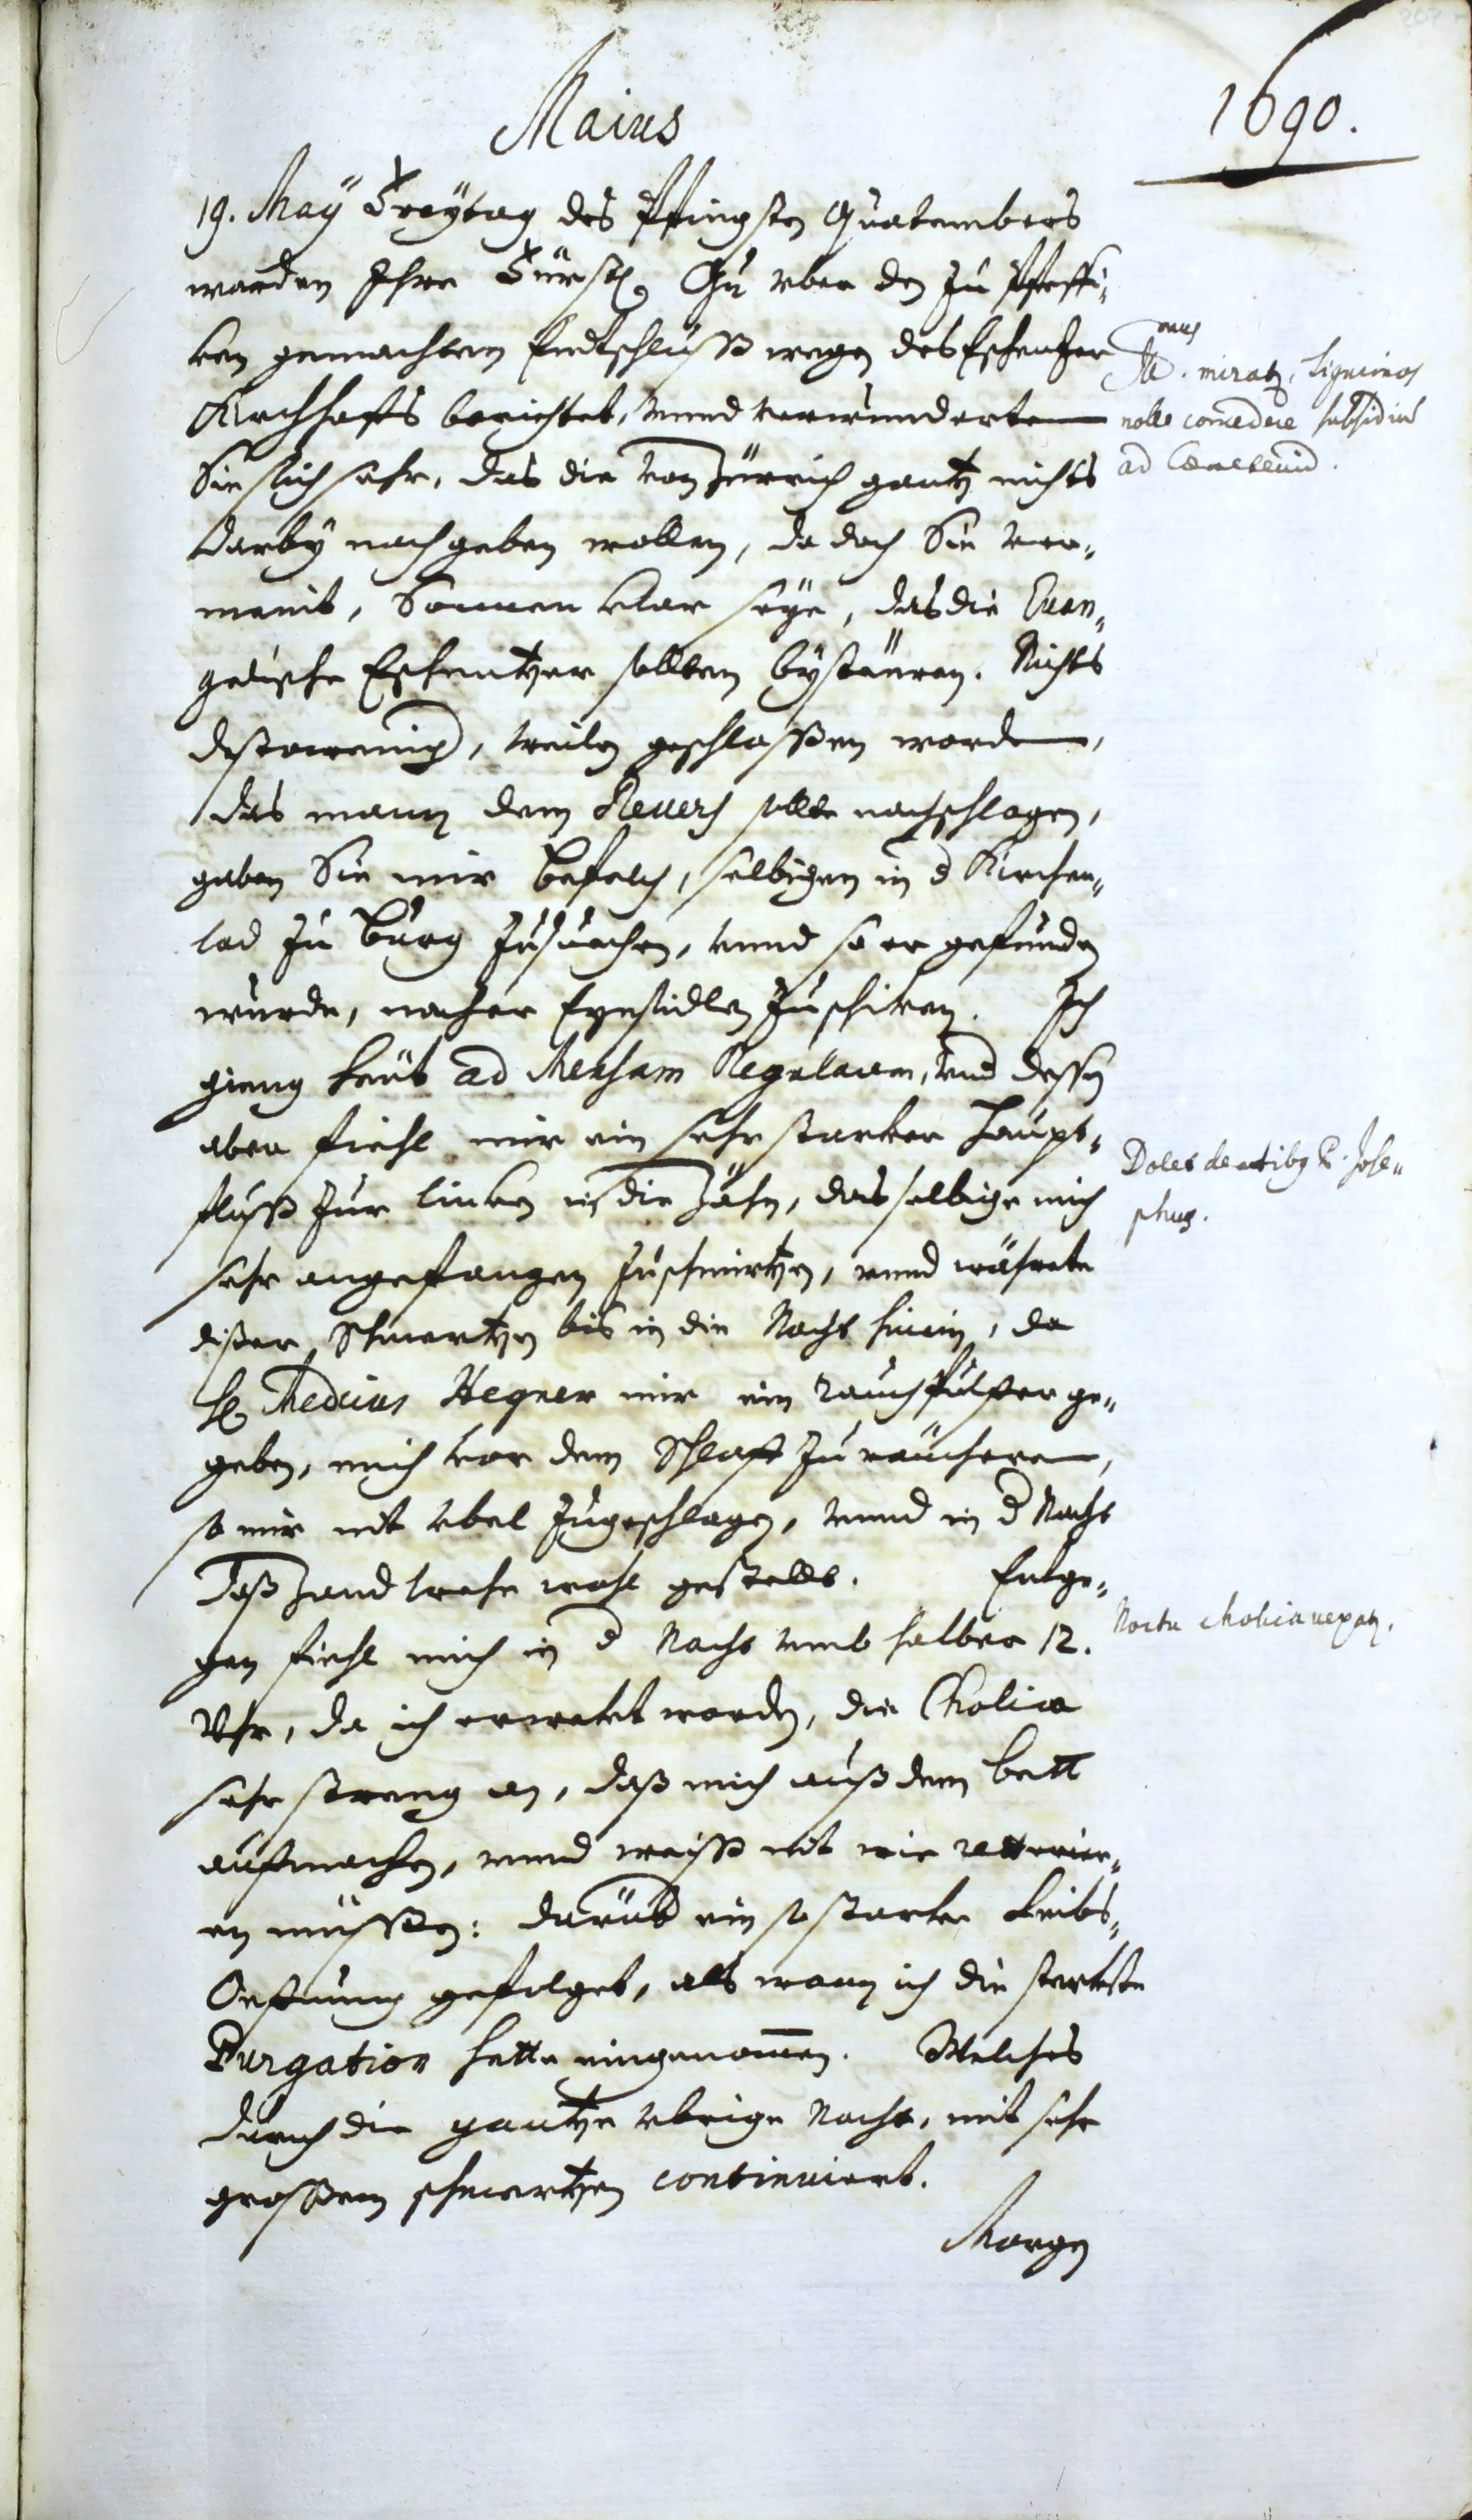 Maius
1690.
19. Maÿ Freÿtag des Pfingsten Quatembers
warden Ihre Fürstl. Gn. vber den zu Pfeffi„
ken gemachten Endtschlusß wegen des Eschentzer
Kirchhoffs berichtet, vnnd verwunderten
Sie sich sehr, das die von Zürrich gantz nichts
darbÿ nachgeben wollen, da doch Sie ver„
meint, Sonnen klar seÿe, das die Euan„
gelische Eschentzer sollten bÿstäuren. Nichts
destoweniger, weilen geschlossen worden,
das mann dem Reuers solle nachschlagen,
gaben Sie mir befelch, selbigen in d Kirchen„
lad zu Burg zusuochen, vnnd so er gefunden
wurde, nacher Eynsidlen zuschiken. Ich
gieng heut ad Mensam Regularem, vnd dessen
aber fiehl mir ein sehr starker Haupt„
fluß zur linken in die Zähn, das selbige mich
sehr angefangen zuschmirtzen, vnnd währete
dißer Schmertzen bis in die Nacht hinein, da
H. Medicus Hegner mir ein rauchpulfer ge„
geben, mich vor dem Schlaff zu räucheren,
so mir nit vbel zugeschlagen, vnnd in d Nacht
daß Zandtwehe wohl gestellt. Entge„
gen fiehl mich in d Nacht vmb halber 12.
Vhr, da ich erwekt worden, die Cholica
sehr streng an, daß mich auß dem bett
aufmachen, vnnd weiß nit wie retterier„
en müssen: darüber ein so starke Leibs„
Oefnung gefolget, als wann ich die sterkste
Purgation hette eingenommen. Welches
durch die gantze vbrige Nacht, mit sehr
grossem schmertzen continuiert.
Morgen
miratur, Tigurinos
nolle concedere subsidium
ad Coemeterium.
Dolet dentibus P. Jose„
phus.
Noctu cholica vexatur.